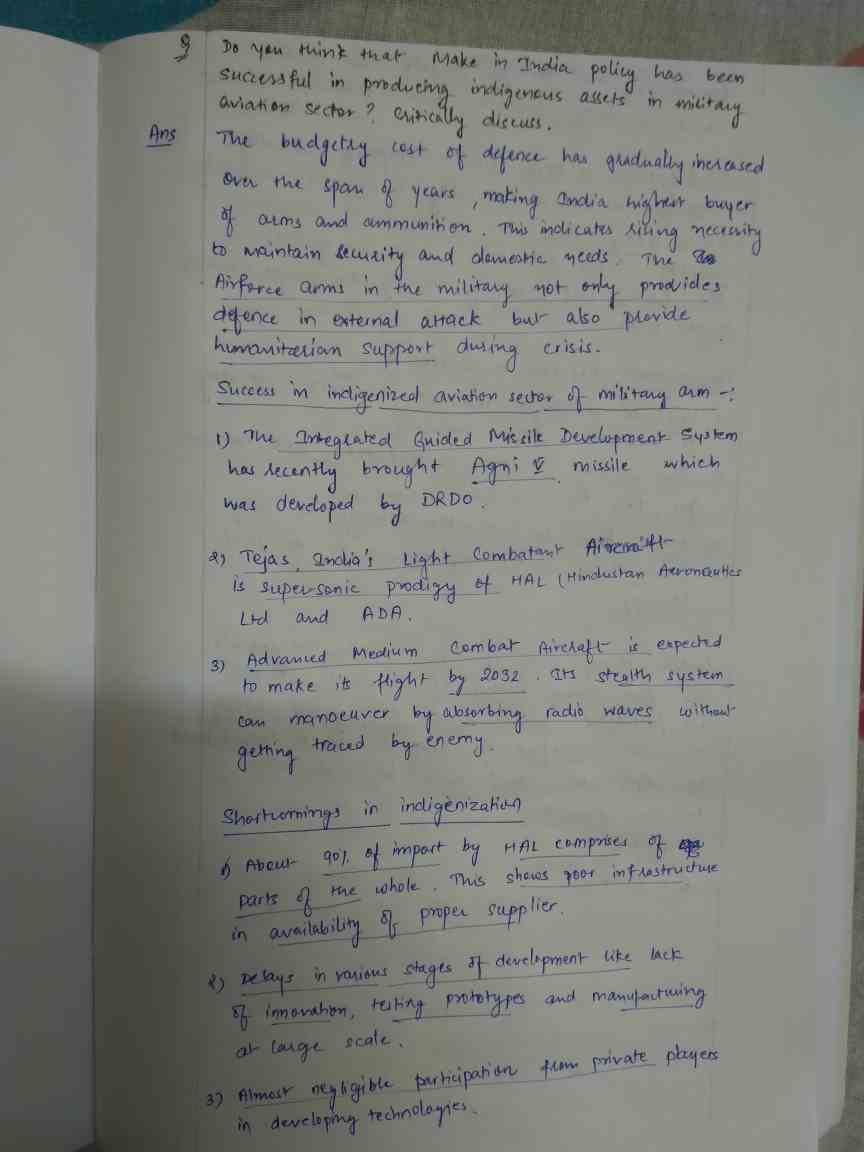 Q Do you think that Make in India policy has been
successful in producing indigenous assets in military
aviation sector? Critically discuss.
Ans The budgetry cost of defence has gradually increased
over the span of years, making India highest buyer
of arms and ammunition. This indicates rising necessity
to maintain security and domestic needs. The
Airforce arms in the military not only provides
defence in external attack but also provide
humanitarian support during crisis.
Success in indigenized aviation sector of military arm -:
1) The Integrated Guided Missile Development System
has recently brought Agni V missile which
was developed by DRDO.
2) Tejas, India's Light Combatant Aircraft
is supersonic prodigy of HAL (Hindustan Aeronautics
Ltd and ADA.
3) Advanced Medium Combat Aircraft is expected
to make its flight by 2032. Its stealth system
can manoeuver by absorbing radio waves without
getting traced by enemy.
Shortcomings in indigenization
1) About 90% of import by HAL comprises of
parts of the whole. This shows poor infrastructure
in availability of proper supplier.
2) Delays in various stages of development like lack
of innovation, testing prototypes and manufacturing
at large scale.
3) Almost negligible participation from private players
in developing technologies.